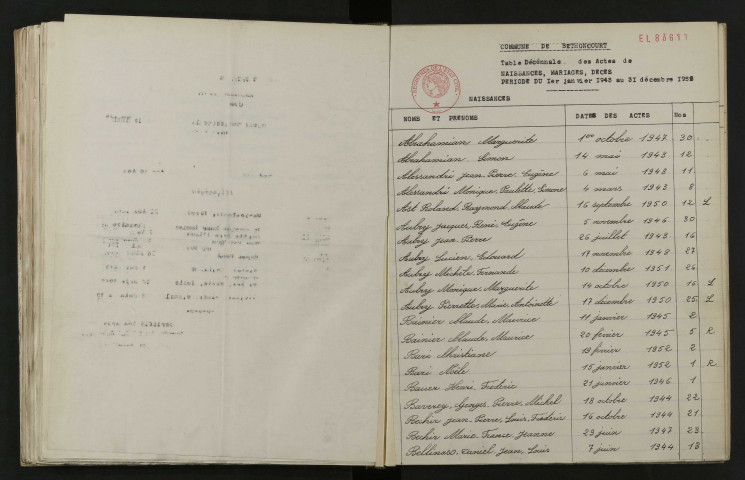 EL 83611
COMMUNE DE BETHONCOURT
Table Décennale. des Actes de
NAISSANCES, MARIAGES, DECES
PERIODE DU 1er janvier 1943 au 31 décembre 1952
NAISSANCES
NOMS ET PRÉNOMS DATES DES ACTES Nos
Abrahamian Marguerite 1er octobre 1947 30
Abrahamian Simon 14 mai 1943 12
Alessandri Jean, Pierre, Eugène 6 mai 1948 11
Alessandri Monique, Paulette, Simone 4 mars 1943 8
Art Roland, Raymond, Claude 16 septembre 1950 12 L
Aubry Jacques, René, Eugène 5 novembre 1946 30
Aubry Jean, Pierre 26 juillet 1943 16
Aubry Lucien, Edouard 19 novembre 1948 27
Aubry Michèle, Fernande 10 décembre 1951 26
Aubry Monique, Marguerite 14 octobre 1950 16 L
Aubry Pierrette, Marie, Antoinette 17 décembre 1950 25 L
Bainier Claude, Maurice 11 janvier 1945 2
Bainier Claude, Maurice 20 février 1945 5 R
Bari Christiane 19 février 1952 2
Bari 15 janvier 1952 1 R
Bauer Henri, Frédéric 21 janvier 1946 1
Baverey, Georges, Pierre, Michel 18 octobre 1944 22
Bechir Jean, Pierre, Louis, Frédéric 16 octobre 1944 21
Bechir Marie, France, Jeanne 23 juin 1947 23
Daniel, Jean, Louis 7 juin 1944 13